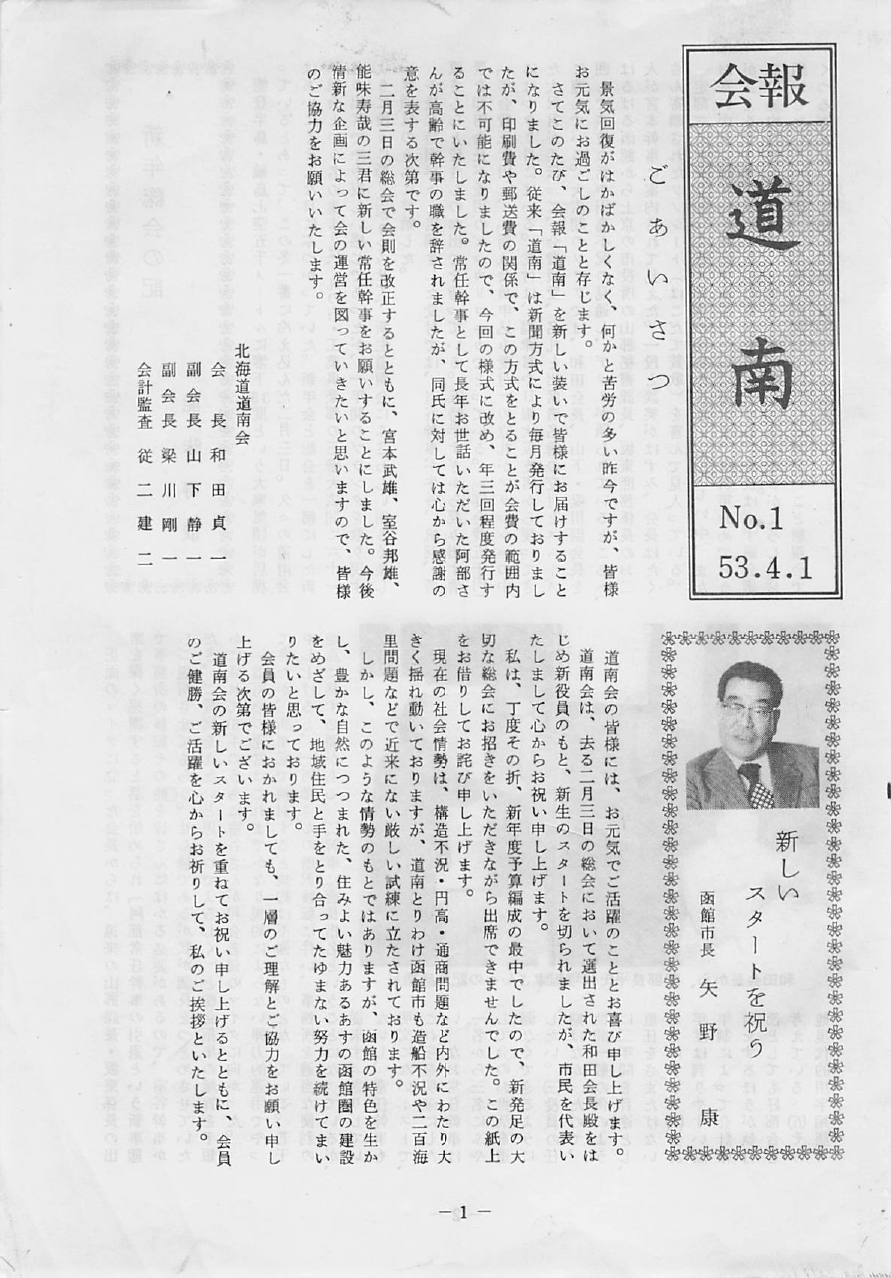 会報
道南
No.1
53.4.1
ごあいさつ
景気回復がはかばかしくなく、何かと苦労の多い昨今ですが、皆様
お元気にお過ごしのことと存じます。
さてこのたび、会報「道南」を新しい装いで皆様にお届けすること
になりました。従来「道南」は新聞方式により毎月発行しておりまし
たが、印刷費や郵送費の関係で、この方式をとることが会費の範囲内
では不可能になりましたので、今回の様式に改め、年三回程度発行す
ることにいたしました。常任幹事として長年お世話いただいた阿部さ
んが高齢で幹事の職を辞されましたが、同氏に対しては心から感謝の
意を表する次第です。
二月三日の総会で会則を改正するとともに、宮本武雄、室谷邦雄、
能味寿哉の三君に新しい常任幹事をお願いすることにしました。今後
清新な企画によって会の運営を図っていきたいと思いますので、皆様
のご協力をお願いいたします。
北海道道南会
会長 和田貞一
副会長 山下静一
副会長 梁川剛一
会計監査 従二建二
新しい
スタートを祝う
函館市長 矢野康
道南会の皆様には、お元気でご活躍のこととお喜び申し上げます。
道南会は、去る二月三日の総会において選出された和田会長殿をは
じめ新役員のもと、新生のスタートを切られましたが、市民を代表い
たしまして心からお祝い申し上げます。
私は、丁度その折、新年度予算編成の最中でしたので、新発足の大
切な総会にお招きをいただきながら出席できませんでした。この紙上
をお借りしてお詫び申し上げます。
現在の社会情勢は、構造不況・円高・通商問題など内外にわたり大
きく揺れ動いておりますが、道南とりわけ函館市も造船不況や二百海
里問題などで近来にない厳しい試練に立たされております。
しかし、このような情勢のもとではありますが、函館の特色を生か
し、豊かな自然につつまれた、住みよい魅力あるあすの函館圏の建設
をめざして、地域住民と手をとり合ってたゆまない努力を続けてまい
りたいと思っております。
会員の皆様におかれましても、一層のご理解とご協力をお願い申し
上げる次第でございます。
道南会の新しいスタートを重ねてお祝い申し上げるとともに、会員
のご健勝、ご活躍を心からお祈りして、私のご挨拶といたします。
－1－